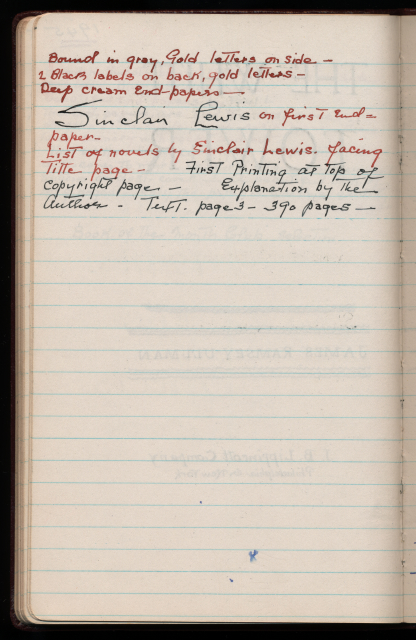 Bound in gray, Gold letters on side —
2 Black labels on back, gold letters —
Deep cream End-papers —
Sinclair Lewis on first End=
paper —
List of novels by Sinclair Lewis. facing
Title page — First Printing at Top of
Copyright page — Explanation by the
Author - Text. page 3 - 390 pages —
JAMES RAMSEY ULLMAN
J. B. Lippincott Company